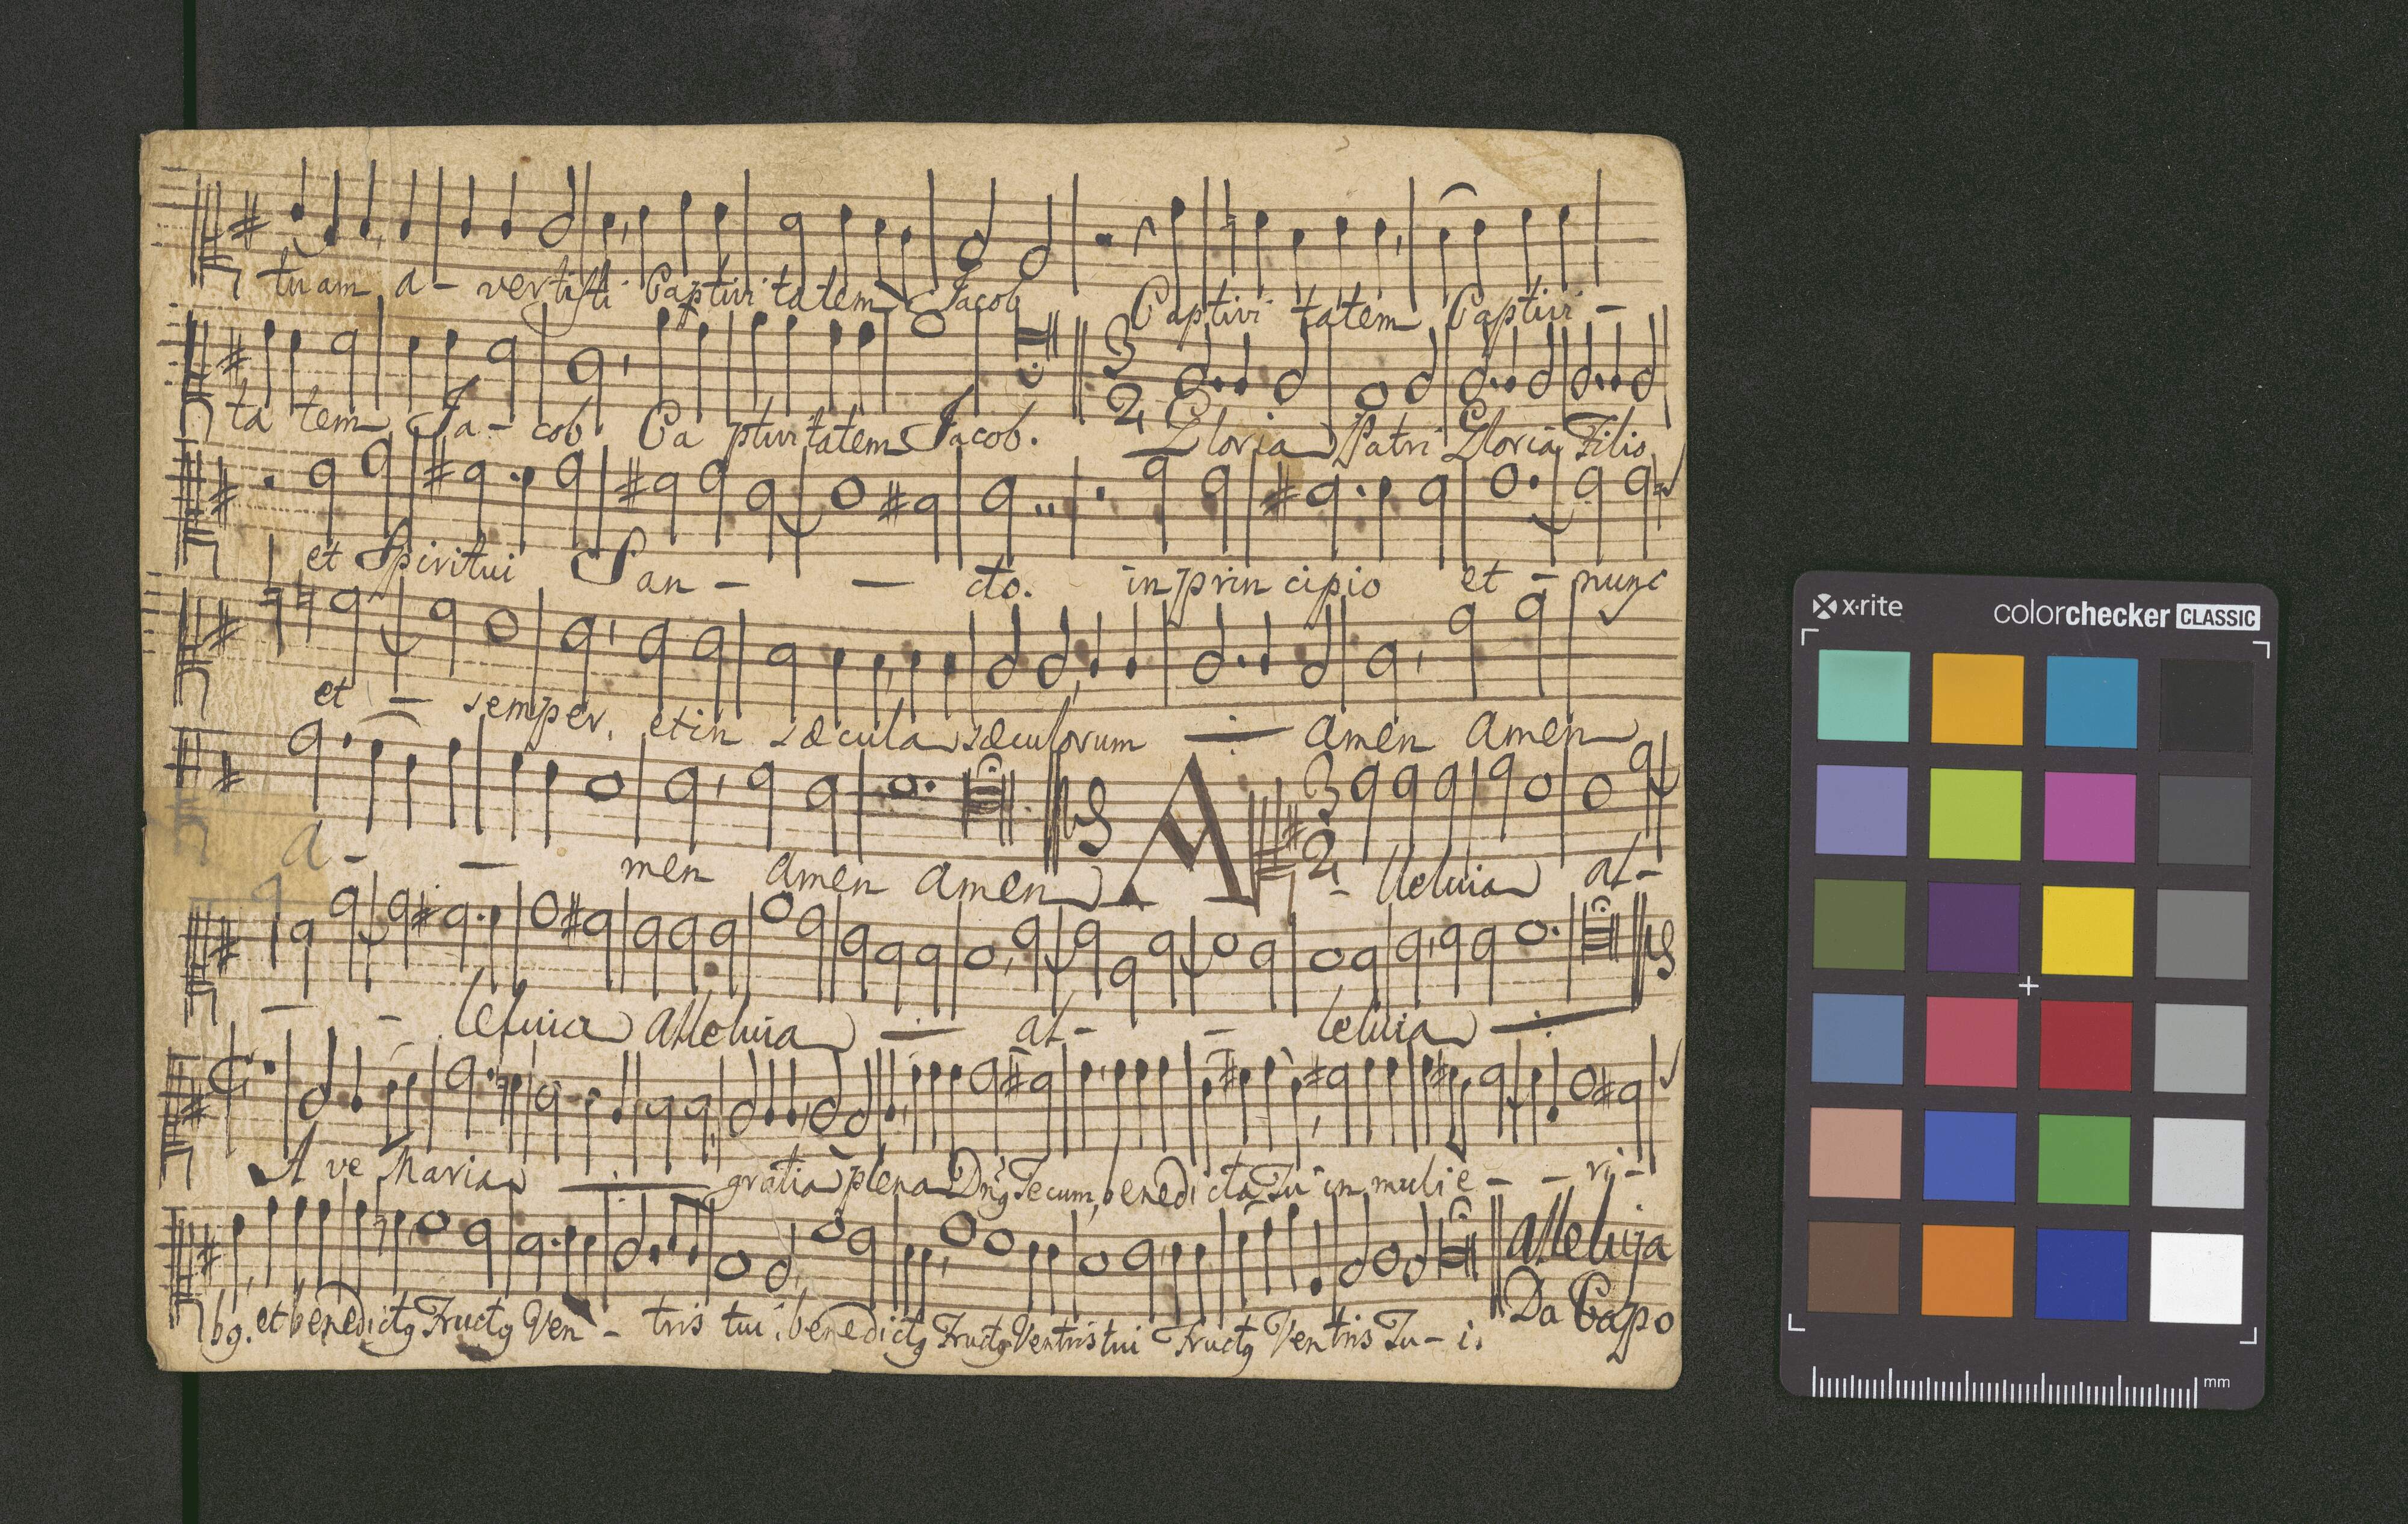 tuam a - vertisti Captivi tatem Jacob Captivi tatem Captivi -
ta tem Ja - cob Ca ptivi tatem Jacob. 3 2 Gloria Patri Gloria Filio
et Spiritui San - - cto. in prin cipio et - nunc
et - semper, et in sæcula sæculorum amen amen
a - - men amen amen A 3 2 - lleluia al -
- - leluia alleluia al - - leluia
A ve Maria gratia plena Dng Tecum, benedi cta Tu in mulie - - ri -
bg. et benedictg Fructg Ven - tris tui, benedictg Fructg Ventris tui Fructg Ventris Tu - i.
alleluja
Da Capo
x-rite
colorchecker CLASSIC
mm